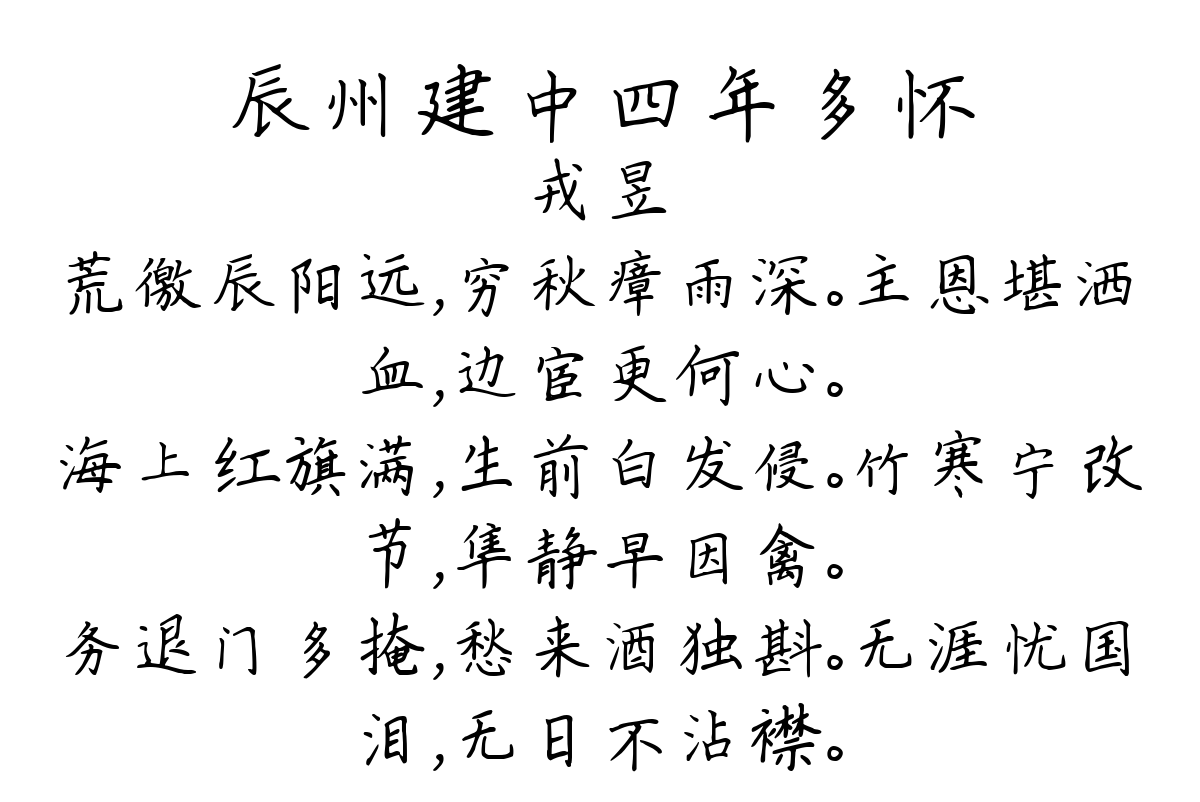 辰州建中四年多怀
戎昱
荒徼辰阳远,穷秋瘴雨深。主恩堪洒
血,边宦更何心。
海上红旗满,生前白发侵。竹寒宁改
节,隼静早因禽。
务退门多掩,愁来酒独斟。无涯忧国
泪,无日不沾襟。